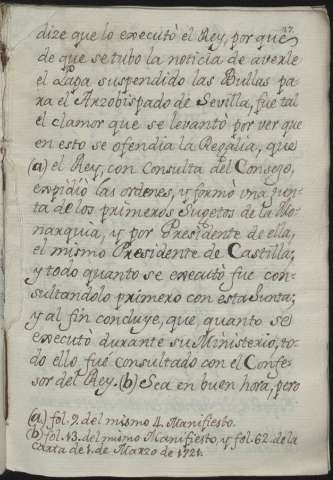 37.
dize que lo executò el Rey, por que
de que se tubo la noticia de averle
el Papa suspendido las Bullas pa
ra el Arzobispado de Sevilla, fue tal
el clamor que se levantò por ver que
en esto se ofendia la Regalia, que
(a) el Rey, con Consulta del Consejo,
expidiò las ordenes, y formò vna Jun
ta de los primeros Sugetos de la Mo
narquia, y por Presidente de ella,
el mismo Presidente de Castilla;
y todo quanto se executò fue con-
sultandolo primero con esta Junta;
y al fin concluye, que, quanto se
executò durante su Ministerio, to
do ello fue consultado con el Confe-
sor del Rey. (b) Sea en buen hora, pero
(a) fol. 9. del mismo 4. Manifiesto.
(b) fol. 13. del mismo Manifiesto, y fol. 62. de la
Carta de 1. de Marzo de 1721.